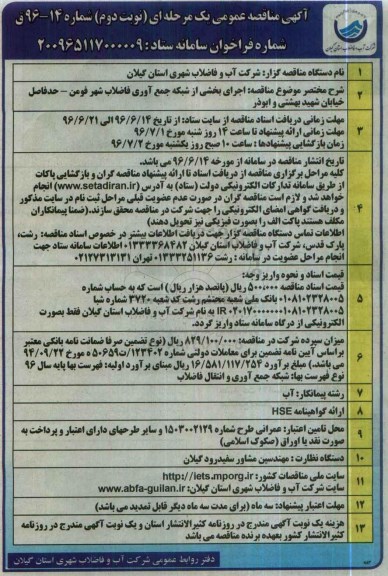 آگهی مناقصه عمومی یک مرحله ای (نوبت دوم) شماره ۱۴-۹۶ق
شماره فراخوان سامانه ستاد: ۲۰۰۹۶۵۱۱۷۰۰۰۰۰۹
۱ نام دستگاه مناقصه گزار: شرکت آب و فاضلاب شهری استان گیلان
۲ شرح مختصر موضوع مناقصه: اجرای بخشی از شبکه جمع آوری فاضلاب شهر فومن – حدفاصل
خیابان شهید بهشتی و ابوذر
۳ مهلت زمانی دریافت اسناد مناقصه از سایت ستاد: از تاریخ ۹۶/۶/۱۴ الی ۹۶/۶/۲۱
مهلت زمانی ارائه پیشنهاد تا ساعت ۱۴ روز شنبه مورخ ۹۶/۷/۱
زمان بازگشایی پیشنهادها: ساعت ۱۰ صبح روز یکشنبه مورخ ۹۶/۷/۲
۴ تاریخ انتشار مناقصه در سامانه از مورخه ۹۶/۶/۱۴ می باشد.
کلیه مراحل برگزاری مناقصه از دریافت اسناد تا ارائه پیشنهاد مناقصه گران و بازگشایی پاکات
از طریق سامانه تدارکات الکترونیکی دولت (ستاد) به آدرس (www.setadiran.ir) انجام
خواهد شد و لازم است مناقصه گران در صورت عدم عضویت قبلی مراحل ثبت نام در سایت مذکور
و دریافت گواهی امضای الکترونیکی را جهت شرکت در مناقصه محقق سازند. (ضمنا پیمانکاران
مکلف هستند پاکت الف را بصورت فیزیکی نیز تحویل دهند)
اطلاعات تماس دستگاه مناقصه گزار جهت دریافت اطلاعات بیشتر در خصوص اسناد مناقصه: رشت،
پارک قدس، شرکت آب و فاضلاب استان گیلان ۰۱۳۳۳۳۶۸۴۸۲ اطلاعات سامانه ستاد جهت
انجام مراحل عضویت در سامانه: رشت ۰۱۳۳۳۲۵۱۱۳۶ تهران ۰۲۱۲۷۳۱۳۱۳۱
۵ قیمت اسناد و نحوه واریز وجه:
قیمت اسناد مناقصه ۵۰۰/۰۰۰ ریال (پانصد هزار ریال) است که به حساب شماره
۰۱۰۸۱۰۲۳۲۸۰۰۵ بانک ملی شعبه محتشم رشت کد شعبه ۳۷۲۰ شماره شبا
به نام شرکت آب و فاضلاب استان گیلان فقط بصورت
الکترونیکی از درگاه سامانه ستاد واریز گردد.
۶ میزان سپرده شرکت در مناقصه: ۸۲۹/۱۰۰/۰۰۰ ریال (نوع تضمین صرفا ضمانت نامه بانکی معتبر
براساس آیین نامه تضمین برای معاملات دولتی شماره ۱۲۳۴۰۲/ت۵۰۶۵۹ه مورخ ۹۴/۰۹/۲۲
می باشد). مبلغ برآورد ۱۶/۵۸۱/۱۱۷/۲۵۴ ریال مبنای برآورد اولیه: فهرست بها پایه سال ۹۶
نوع فهرست بها: شبکه جمع آوری و انتقال فاضلاب
۷ رشته پیمانکار: آب
۸ ارائه گواهینامه HSE
۹ محل تامین اعتبار: عمرانی طرح شماره ۱۵۰۳۰۰۲۱۲۹ و سایر طرحهای دارای اعتبار و پرداخت به
صورت نقد یا اوراق (صکوک اسلامی)
۱۰ دستگاه نظارت: مهندسین مشاور سفیدرود گیلان
۱۱ سایت ملی مناقصات کشور: http://iets.mporg.ir
سایت شرکت آب و فاضلاب شهری استان گیلان: www.abfa-guilan.ir
۱۲ مهلت اعتبار پیشنهاد: سه ماه (برای مدت سه ماه دیگر قابل تمدید می باشد)
۱۳ هزینه یک نوبت آگهی مندرج در روزنامه کثیرالانتشار استان و یک نوبت آگهی مندرج در روزنامه
کثیرالانتشار کشور بعهده برنده مناقصه می باشد
دفتر روابط عمومی شرکت آب و فاضلاب شهری استان گیلان